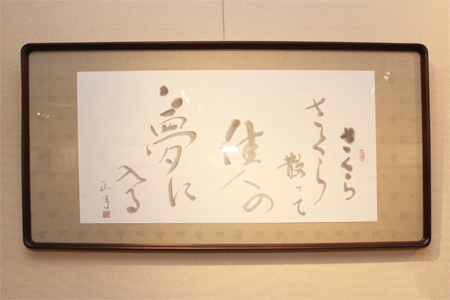 さくら
さくら
散って
佳人の
夢に
入る